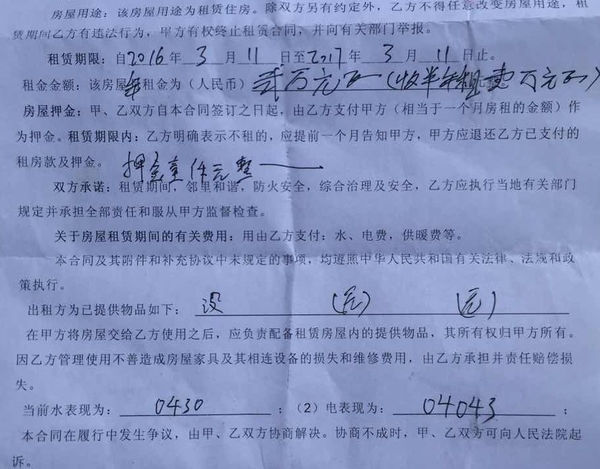 房屋用途：该房屋用途为租赁住房。除双方另有约定外，乙方不得任意改变房屋用途，租
赁期间乙方有违法行为，甲方有权终止租赁合同，并向有关部门举报。
租赁期限：自2016年 3 月 11 日至2017年 3 月 11 日止。
租金金额：该房屋年租金为（人民币）贰万元正（收半年租壹万元正）
房屋押金：甲、乙双方自本合同签订之日起，由乙方支付甲方（相当于一个月房租的金额）作
为押金。租赁期限内：乙方明确表示不租的，应提前一个月告知甲方，甲方应退还乙方已支付的
租房款及押金。押金壹仟元整
双方承诺：租赁期间，邻里和谐，防火安全，综合治理及安全，乙方应执行当地有关部门
规定并承担全部责任和服从甲方监督检查。
关于房屋租赁期间的有关费用：用由乙方支付：水、电费，供暖费等。
本合同及其附件和补充协议中未规定的事项，均遵照中华人民共和国有关法律、法规和政
策执行。
出租方为已提供物品如下：没
在甲方将房屋交给乙方使用之后，应负责配备租赁房屋内的提供物品，其所有权归甲方所有。
因乙方管理使用不善造成房屋家具及其相连设备的损失和维修费用，由乙方承担并责任赔偿损
失。
当前水表现为：0430；（2）电表现为：04043；
本合同在履行中发生争议，由甲、乙双方协商解决。协商不成时，甲、乙双方可向人民法院起
诉。